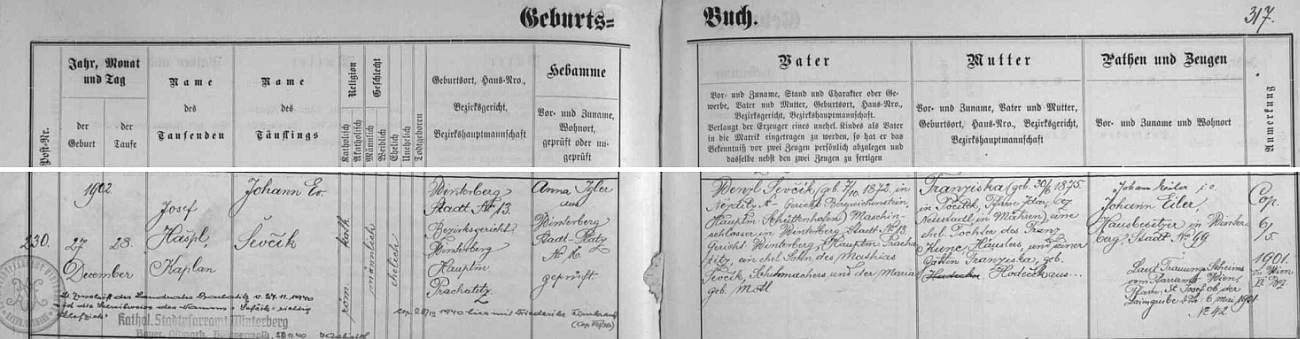 Geburts=
Buch.
317.
Post-Nr.
Jahr, Monat
und Tag
der
Geburt
der
Taufe
Name
des
Taufenden
Name
des
Täuflings
Religion
Katholisch
Akatholisch
Geschlecht
Männlich
Weiblich
Ehelich
Unehelich
Todtgeboren
Geburtsort, Haus-Nro.,
Bezirksgericht,
Bezirkshauptmannschaft
Hebamme
Vor- und Zuname,
Wohnort,
geprüft oder un-
geprüft
Vater
Vor- und Zuname, Stand und Charakter oder Ge-
werbe, Vater und Mutter, Geburtsort, Haus-Nro.,
Bezirksgericht, Bezirkshauptmannschaft.
Verlangt der Erzeuger eines unehel. Kindes als Vater
in die Matrik eingetragen zu werden, so hat er das
Bekenntniß vor zwei Zeugen persönlich abzulegen und
dasselbe nebst den zwei Zeugen zu fertigen
Mutter
Vor- und Zuname, Vater und Mutter,
Geburtsort, Haus-Nro., Bezirksgericht,
Bezirkshauptmannschaft.
Pathen und Zeugen
Vor- und Zuname und Wohnort
Anmerkung
230.
1902
27
28.
December
Josef
Hašpl,
Kaplan
Johann Ev.
Ševčík
röm. kath.
männlich
ehelich
Winterberg
Stadt No 13.
Bezirksgericht
Winterberg
Hauptm
Prachatitz
Anna Igler
aus
Winterberg
Stadt-Platz
No 16.
geprüft.
Wenzl Ševčík (geb. 7/10 1872, in
Gericht Bergreichenstein,
Hauptm Schüttenhofen) Maschin-
schlosser in Winterberg Stadt No 13
Gericht Winterberg, Hauptm Pracha-
titz, ein ehel. Sohn des Mathias
Ševčík, Schuhmachers und der Maria
geb. Motl
Franziska (geb. 30/6 1875.
in
Neustadtl in Mähren) eine
ehel. Tochter des Franz
Kunc, Häusler, und seiner
Gattin Franziska, geb.
Johann Eiler
Johann Eiler,
Hausbesitzer in Winter-
berg, Stadt No 99
Laut Trauungsscheins
vom Pfarramte Wien
Pfarre St. Josef ob der
Laimgrube ddo 6 Mai 1901
No 42
Cop.
6/
5.
1901.
in Wien
Kathol. Stadtpfarramt Winterberg